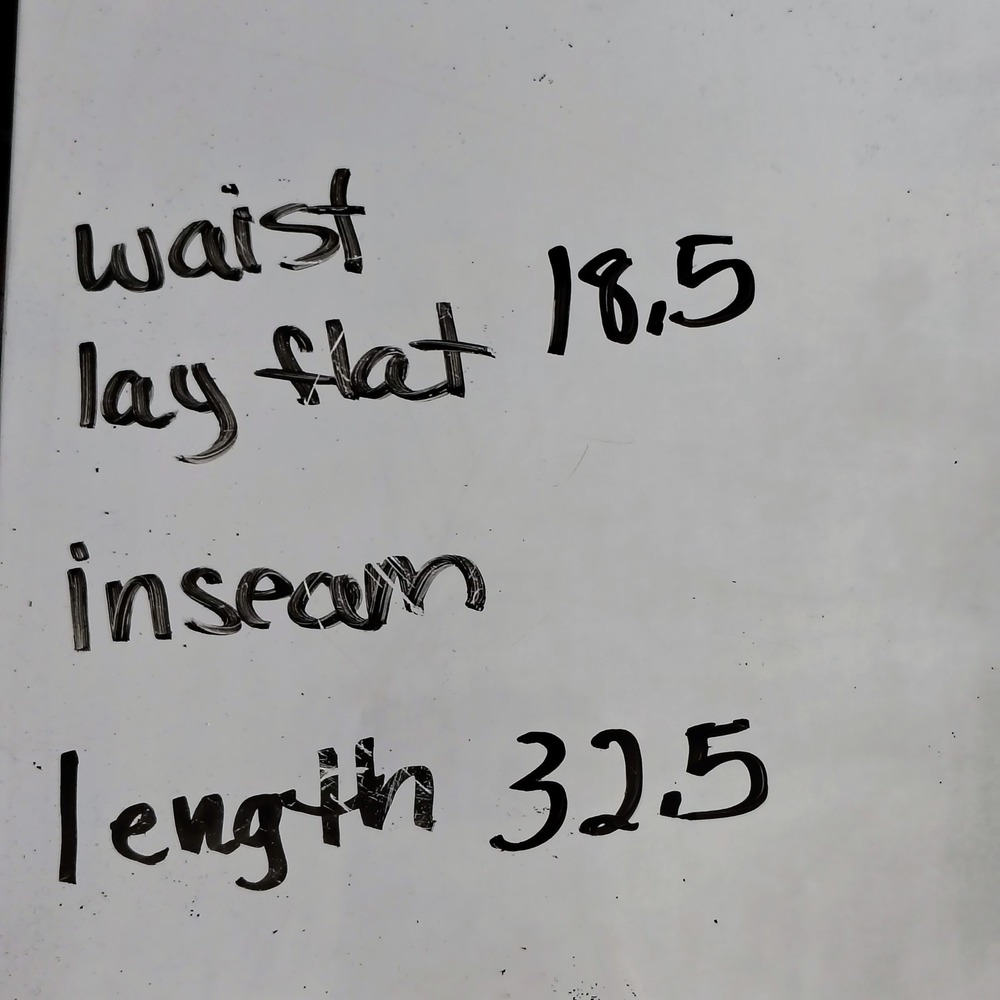 waist
lay flat 18.5
inseam
length 32.5